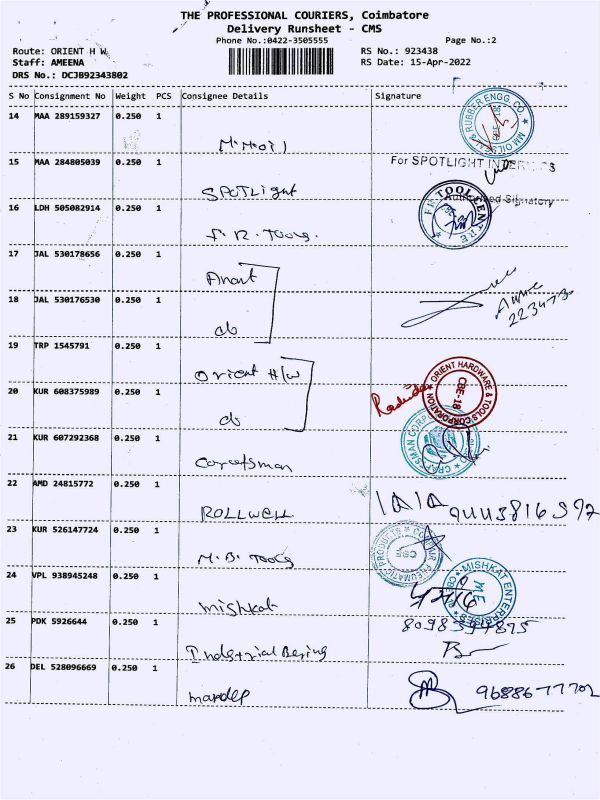 THE PROFESSIONAL COURIERS, Coimbatore
Delivery Runsheet - CMS
Phone No.:0422-3505555
Page No.:2
Route: ORIENT H W
RS No.: 923438
Staff: AMEENA
RS Date: 15-Apr-2022
DRS No.: DCJB92343802
S No Consignment No Weight PCS Consignee Details Signature
14 MAA 289159327 0.250 1
M.M.Oil
RUBBER ENGG. CO.
15 MAA 284805039 0.250 1
For SPOTLIGHT
SPOTLight
Signatory
16 LDH 505082914 0.250 1
F.R. TOOLS
FR TOOL CENTRE
17 JAL 530178656 0.250 1
Anant
18 JAL 530176530 0.250 1
do
223473
19 TRP 1545791 0.250 1
Orient H/W
20 KUR 608375989 0.250 1
do
ORIENT HARDWARE & TOOLS CORPORATION
CBE-18
21 KUR 607292368 0.250 1
Craftsman
22 AMD 24815772 0.250 1
ROLLWELL
23 KUR 526147724 0.250 1
M.B. Tools
PNEUMATIC PRODUCTS
CBE
24 VPL 938945248 0.250 1
mishkat
MISHKAT ENTERPRISES
M.E
25 PDK 5926644 0.250 1
8098594875
26 DEL 528096669 0.250 1
mardep